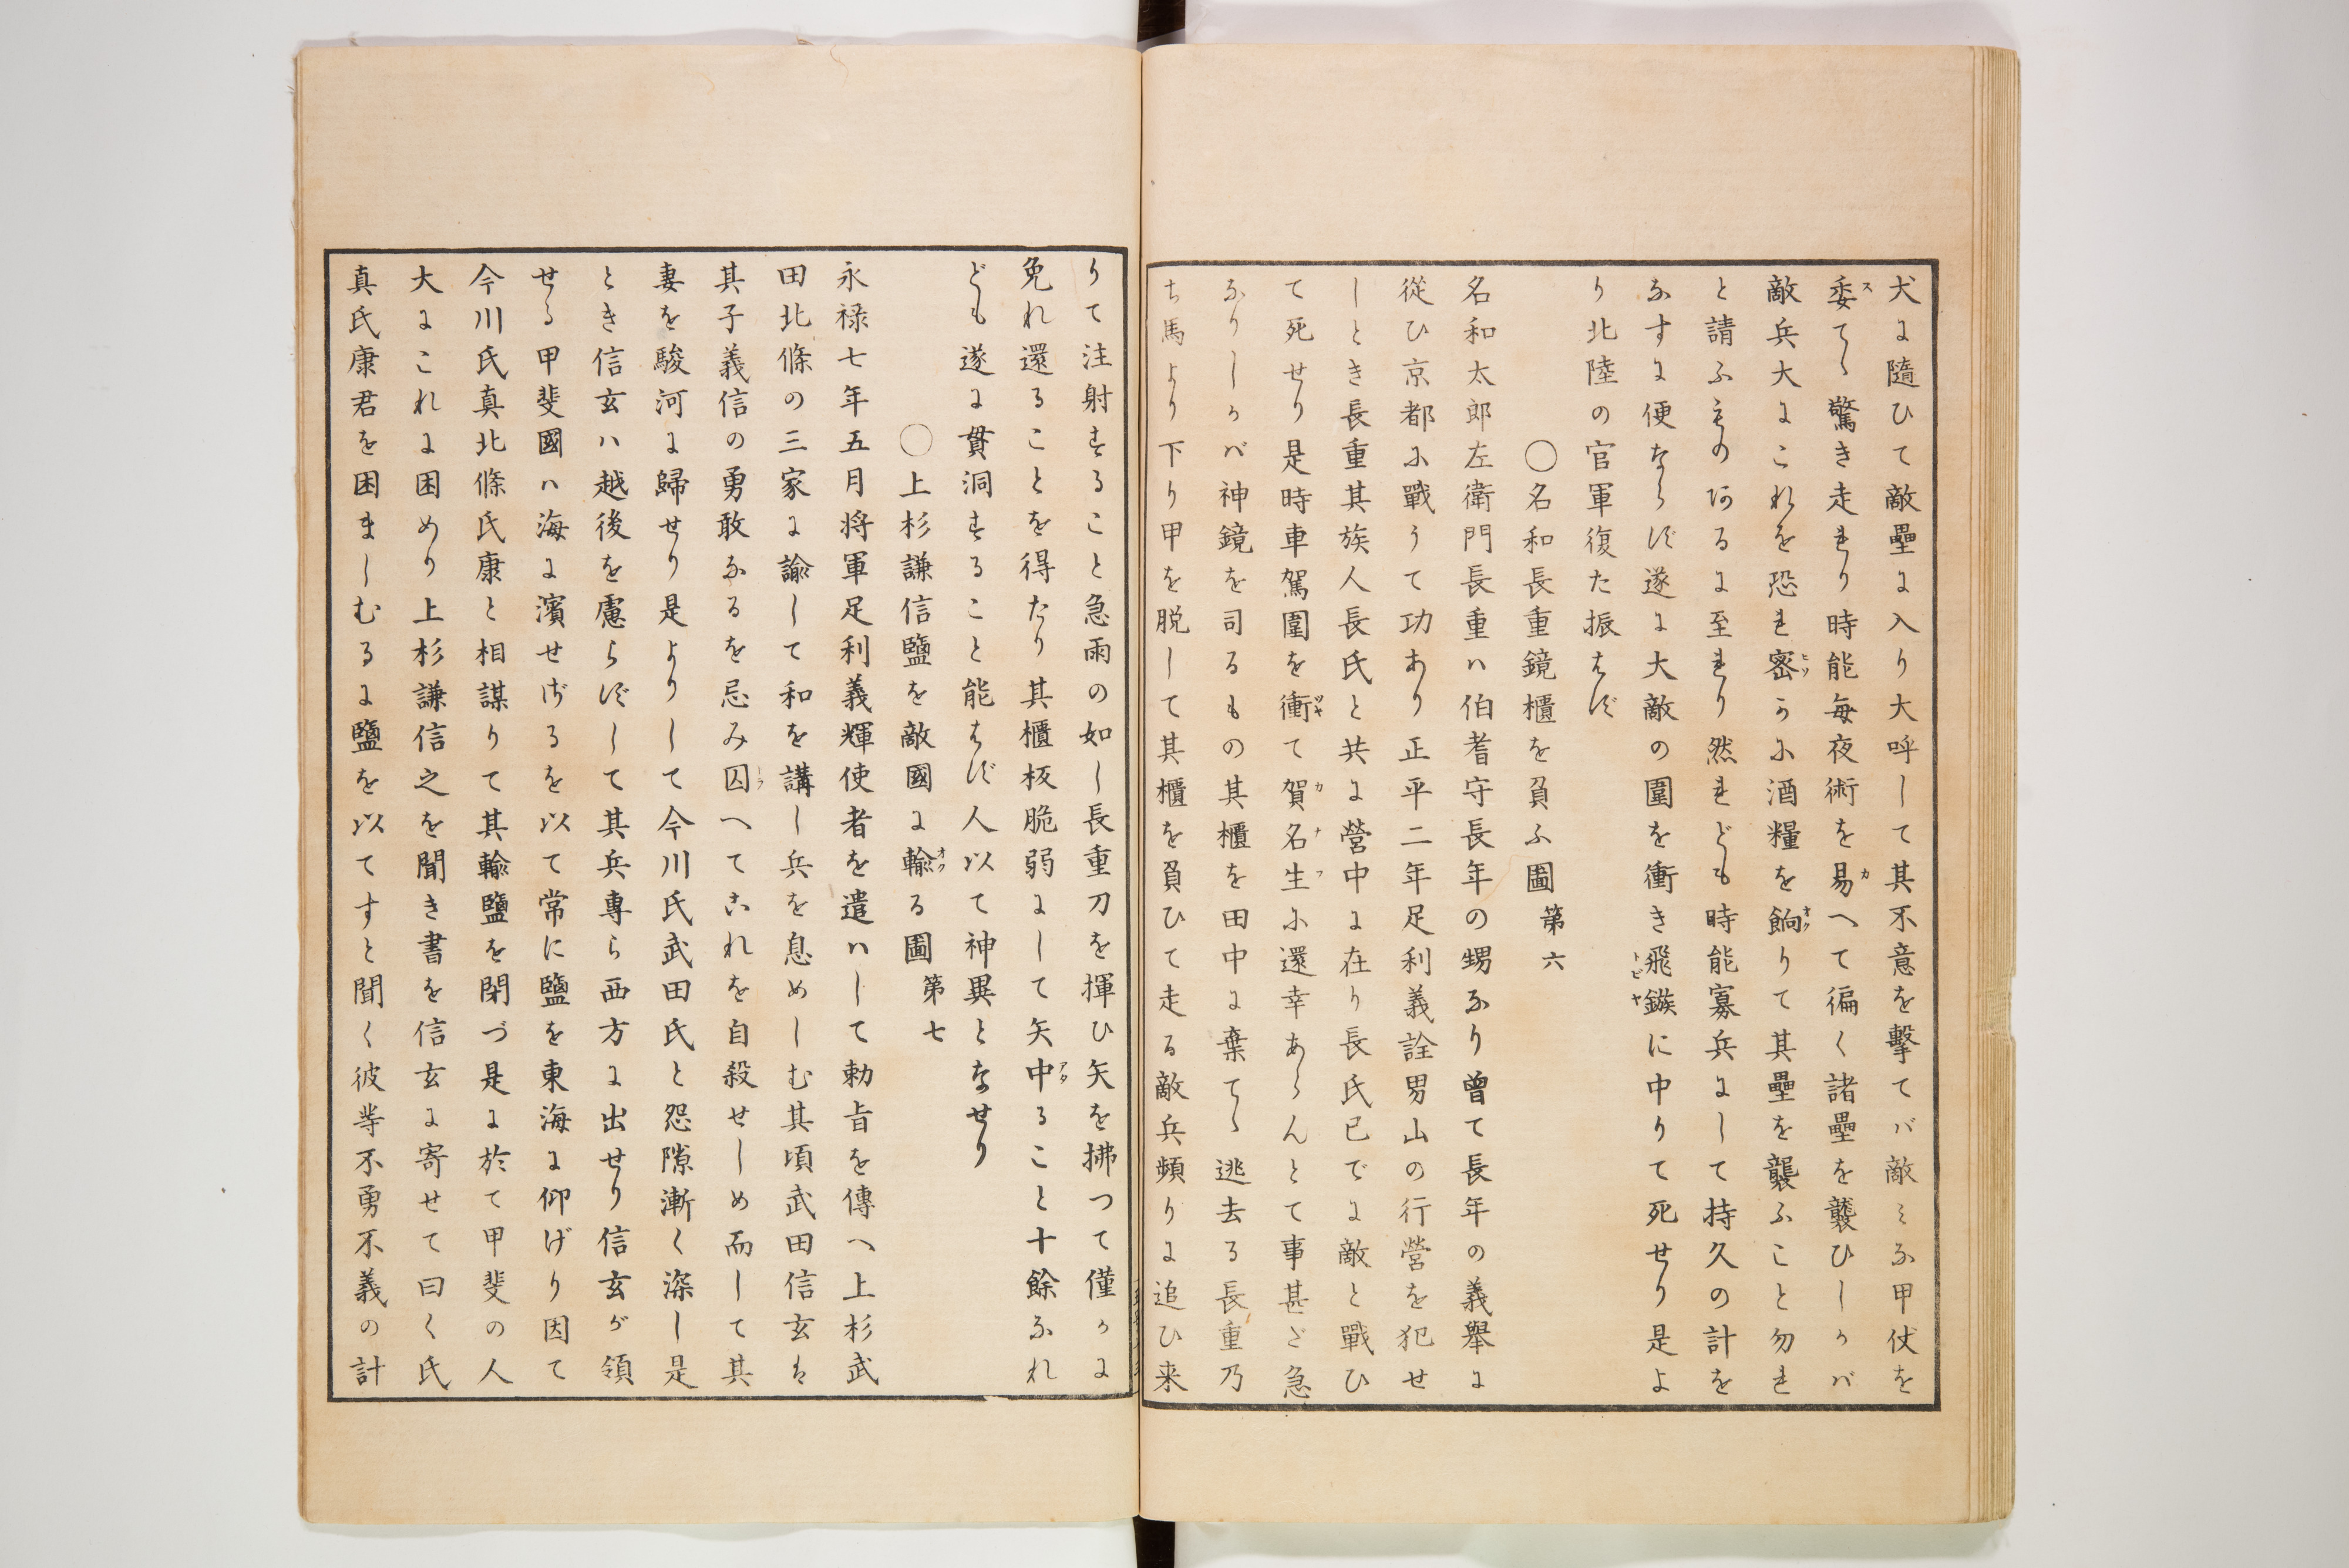 犬に隨ひて敵壘に入り大呼して其不意を擊てバ敵ミな甲仗を
委てゝ驚き走れり時能毎夜術を易へて徧く諸壘を襲ひしかバ
敵兵大にこれを恐れ密かに酒糧を餉りて其壘を襲ふこと勿れ
と請ふもの阿るに至れり然れども時能寡兵にして持久の計を
なすに便ならず遂に大敵の圍を衝き飛鏃に中りて死せり是よ
り北陸の官軍復た振はず
○名和長重鏡櫃を負ふ圖 第六
名和太郎左衛門長重ハ伯耆守長年の甥なり曾て長年の義舉に
從ひ京都に戰うて功あり正平二年足利義詮男山の行營を犯せ
しとき長重其族人長氏と共に營中に在り長氏已でに敵と戰ひ
て死せり是時車駕圍を衝て賀名生に還幸あらんとて事甚ざ急
なりしかバ神鏡を司るもの其櫃を田中に棄てゝ逃去る長重乃
ち馬より下り甲を脱して其櫃を負ひて走る敵兵頻りに追ひ来
りて注射すること急雨の如し長重刀を揮ひ矢を拂つて僅かに
免れ還ることを得たり其櫃板脆弱にして矢中ること十餘なれ
ども遂に貫洞すること能はず人以て神異となせり
○上杉謙信鹽を敵國に輸る圖 第七
永禄七年五月将軍足利義輝使者を遣ハして勅旨を傳へ上杉武
田北條の三家に諭して和を講し兵を息めしむ其頃武田信玄は
其子義信の勇敢なるを忌み囚へてこれを自殺せしめ而して其
妻を駿河に歸せり是よりして今川氏武田氏と怨隙漸く深し是
とき信玄ハ越後を慮らずして其兵專ら西方に出せり信玄が領
せる甲斐國ハ海に濱せざるを以て常に鹽を東海に仰げり因て
今川氏真北條氏康と相謀りて其輸鹽を閉づ是に於て甲斐の人
大にこれに困めり上杉謙信之を聞き書を信玄に寄せて曰く氏
真氏康君を困ましむるに鹽を以てすと聞く彼等不勇不義の計